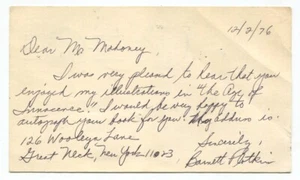 12/2/76
Dear Mr Mahoney,
I was very pleased to hear that you
enjoyed my illustrations in "The Age of
Innocence." I would be very happy to
autograph your book for you. My address is:
126 Wooleys Lane
Great Neck, New York 11023
Sincerely,
Barnett Plotkin